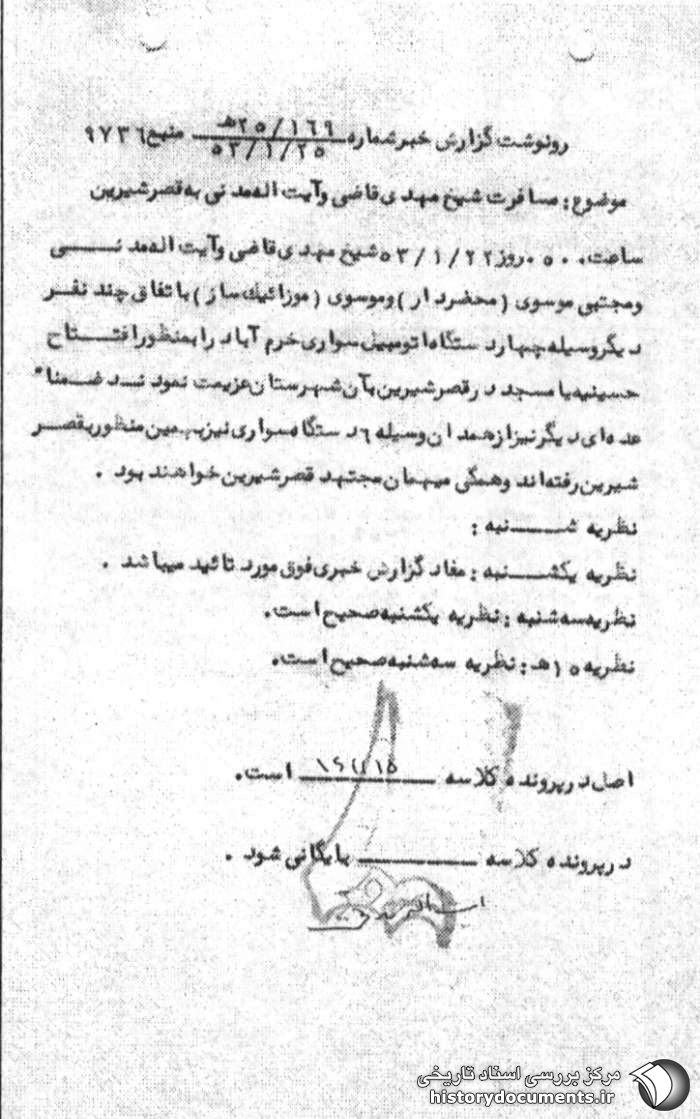 رونوشت گزارش خبر شماره ۲۵/۱۶۹هـ منبع ۹۷۳۶
۵۳/۱/۲۵
موضوع : مسافرت شیخ مهدی قاضی و آیت اله مدنی به قصرشیرین
ساعت ۰۵۰۰ روز ۵۳/۱/۲۲ شیخ مهدی قاضی و آیت اله مدنی
و مجتبی موسوی ( محضردار ) و موسوی ( موزائیک ساز ) باتفاق چند نفر
دیگر وسیله چهار دستگاه اتومبیل سواری خرم آباد را بمنظور افتتاح
حسینیه یا مسجد در قصرشیرین بآن شهرستان عزیمت نمودند ضمنا"
عده ای دیگر نیز از همدان وسیله ۶ دستگاه سواری نیز بهمین منظور بقصر
شیرین رفته اند و همگی میهمان مجتهد قصرشیرین خواهند بود .
نظریه شنبه :
نظریه یکشنبه : مفاد گزارش خبری فوق مورد تائید میباشد .
نظریه سه شنبه : نظریه یکشنبه صحیح است .
نظریه ۱۵هـ : نظریه سه شنبه صحیح است .
اصل در پرونده کلاسه است .
در پرونده کلاسه بایگانی شود .
مرکز بررسی اسناد تاریخی
historydocuments.ir